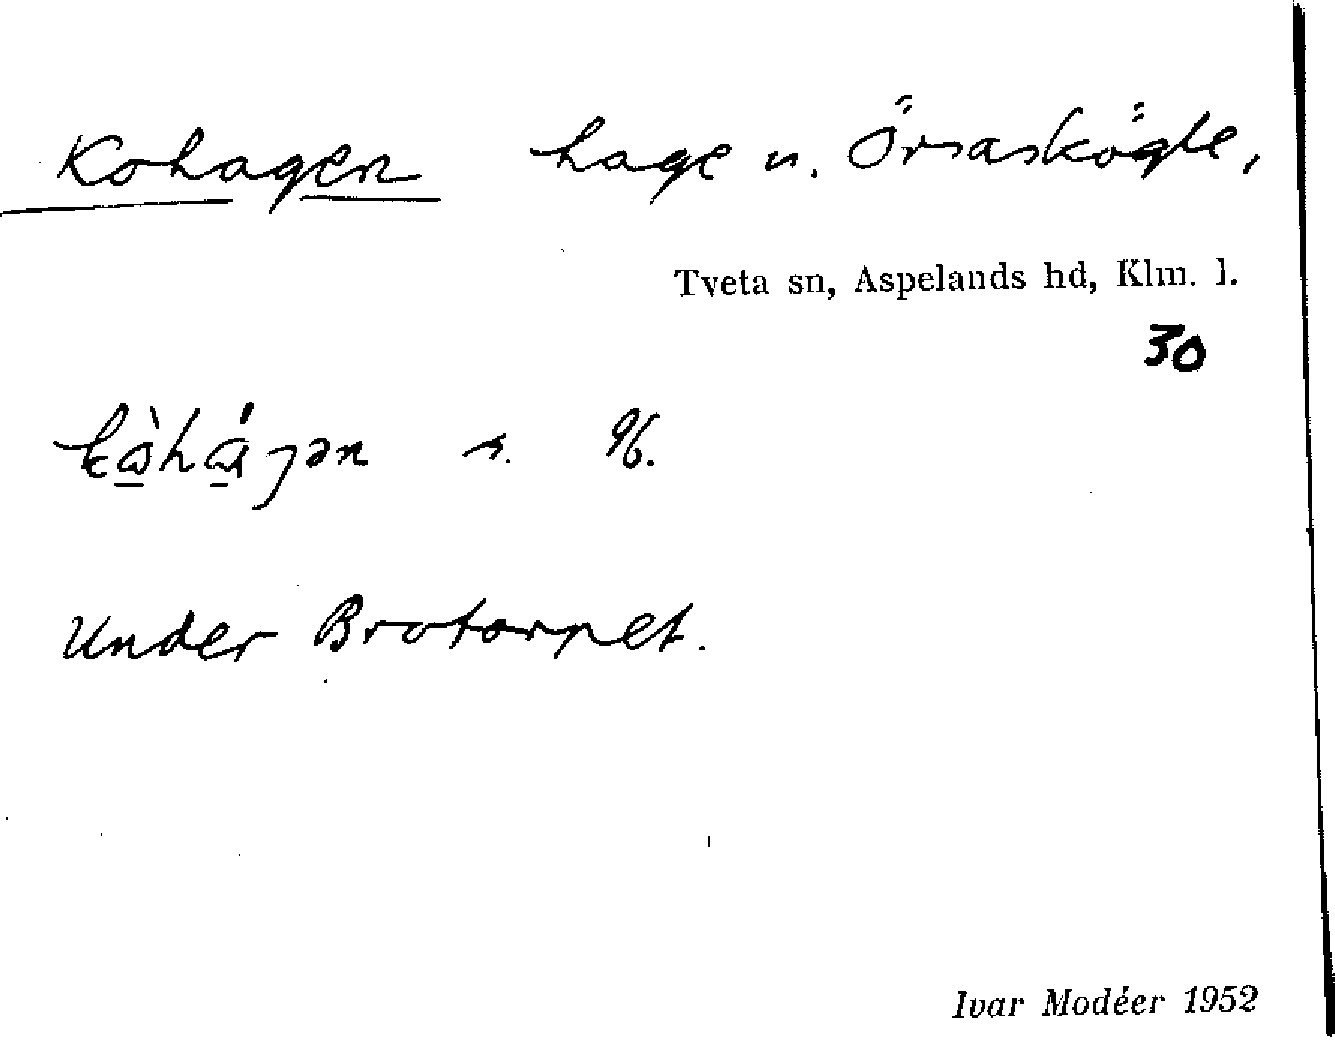 Kohagen hage u. Örsaskögle,
Tveta sn, Aspelands hd, Klm. l.
30
Under Brotorpet.
Ivar Modéer 1952